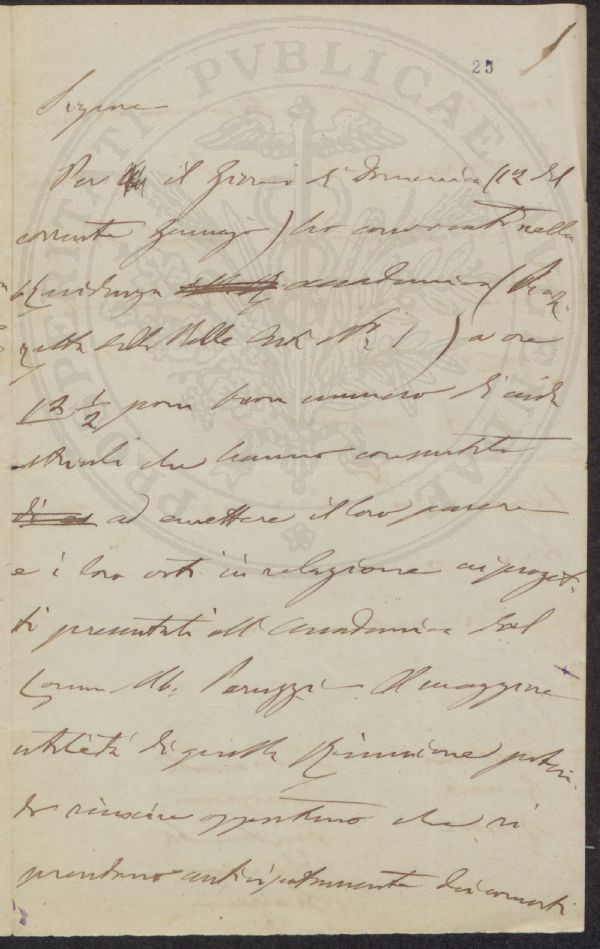 25
PROSPERITATI PVBLICAE AVGENDAE
Signore
Per il giorno di Domenica (12 del
corrente Gennajo) ho convocato nella
Residenza accademica (Piaz-
zetta delle Belle Arti N.º 1) a ore
12 ½ pom buon numero di indu
striali che hanno consentito
di ad emettere il loro parere
e i loro voti in relazione ai proget-
ti presentati all'Accademia dal
Comm. Ub. Peruzzi. Al maggiore
utilità di quella Riunione poten-
do riuscire opportuno che si
prendano anticipatamente dei concerti